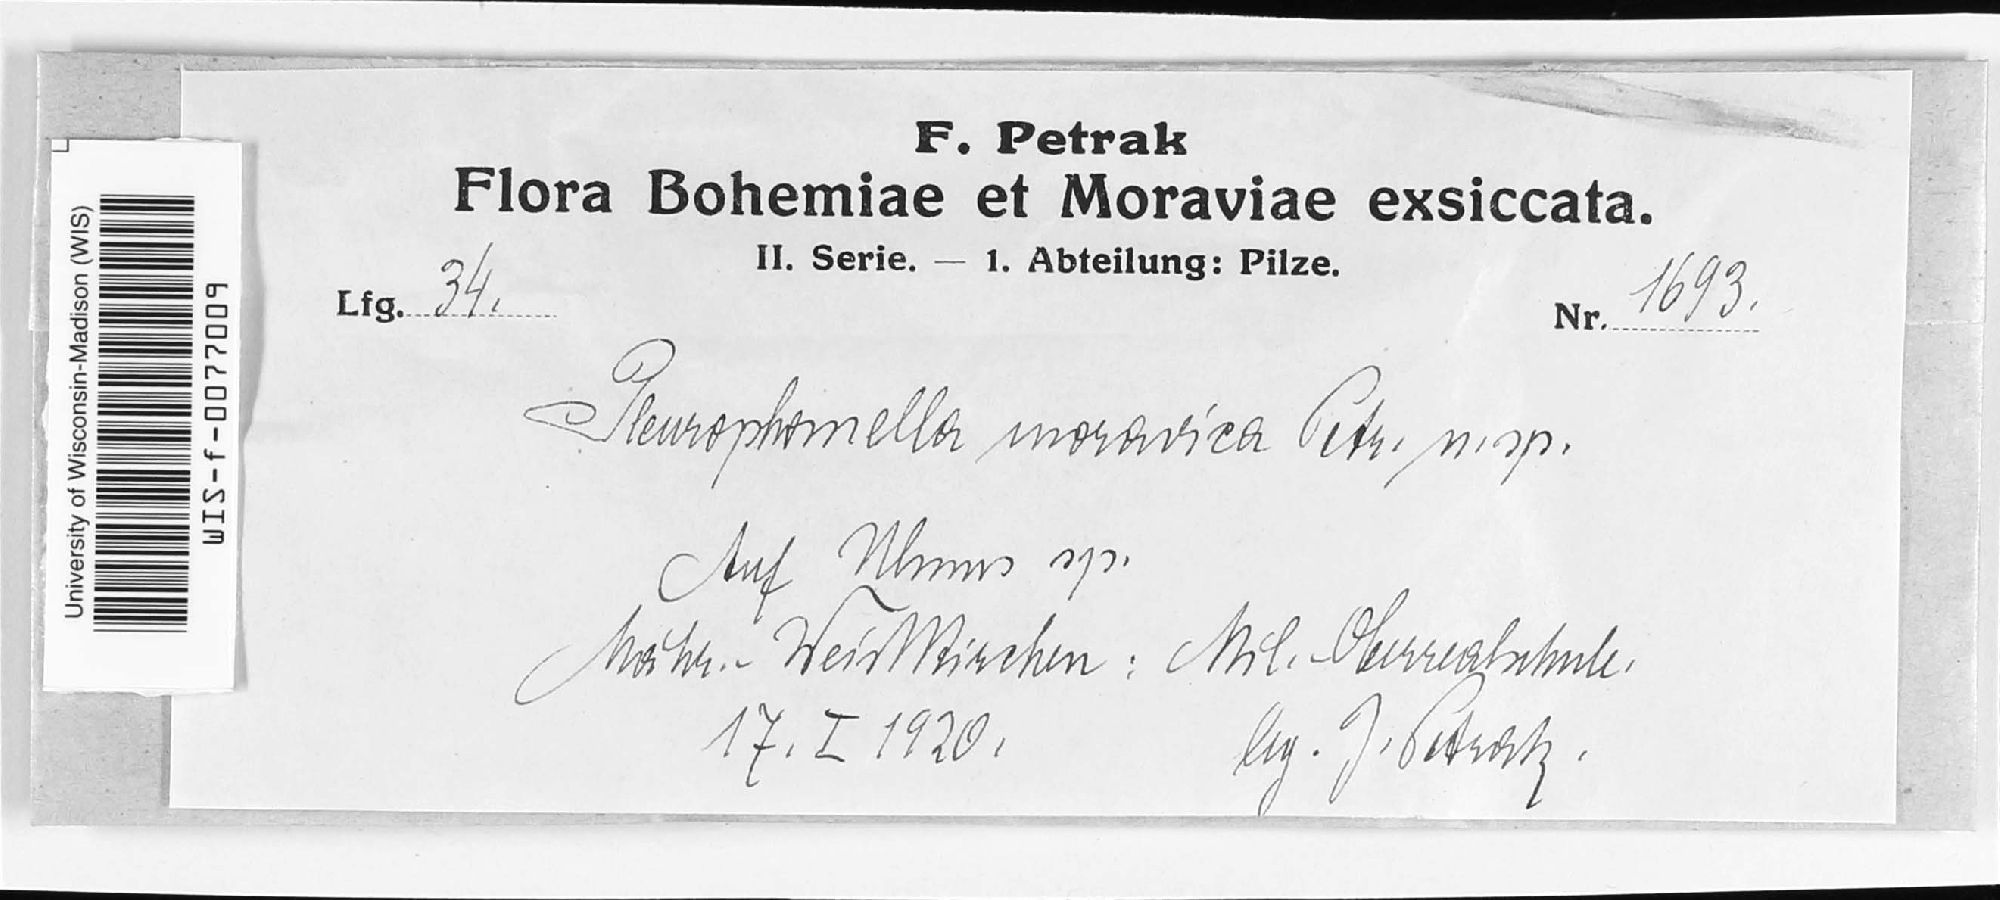 F. Petrak
Flora Bohemiae et Moraviae exsiccata.
II. Serie. — 1. Abteilung: Pilze.
Lfg. 34. Nr. 1693.
Pleurophomella moravica Petr. n. sp.
Auf Ulmus sp.
Mähr.-Weißkirchen: Mil.-Oberrealschule.
17. I 1920. leg. J. Petrak.
University of Wisconsin-Madison (WIS)
WIS-f-0077009